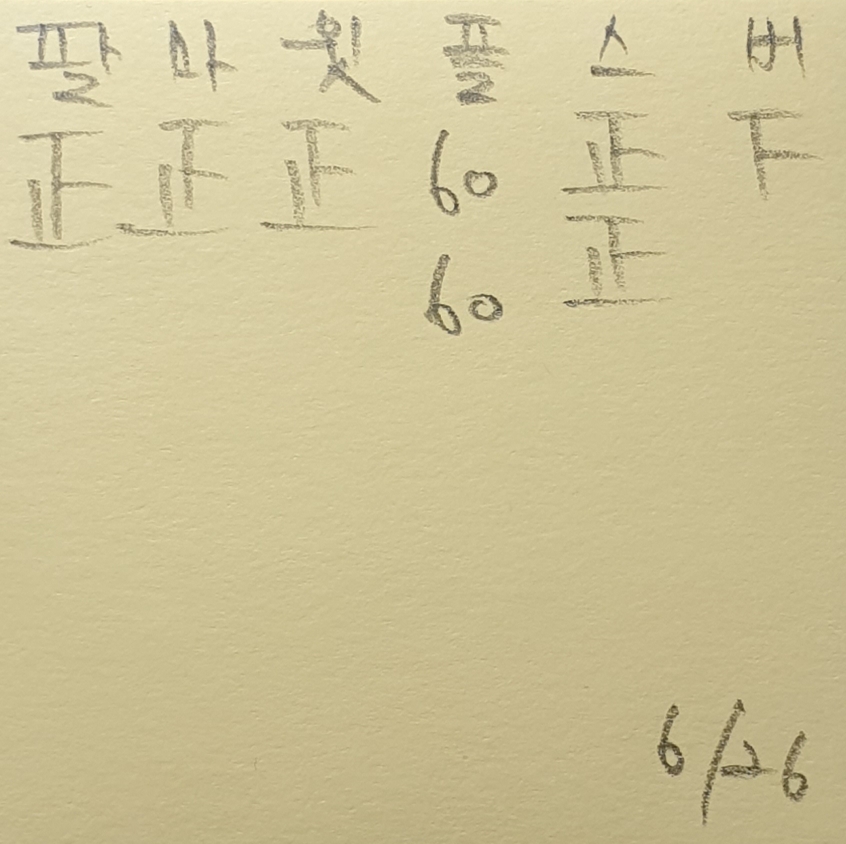 팔 마 윗 플 스 버
正 正 正 60 正 下
60 正
6/26